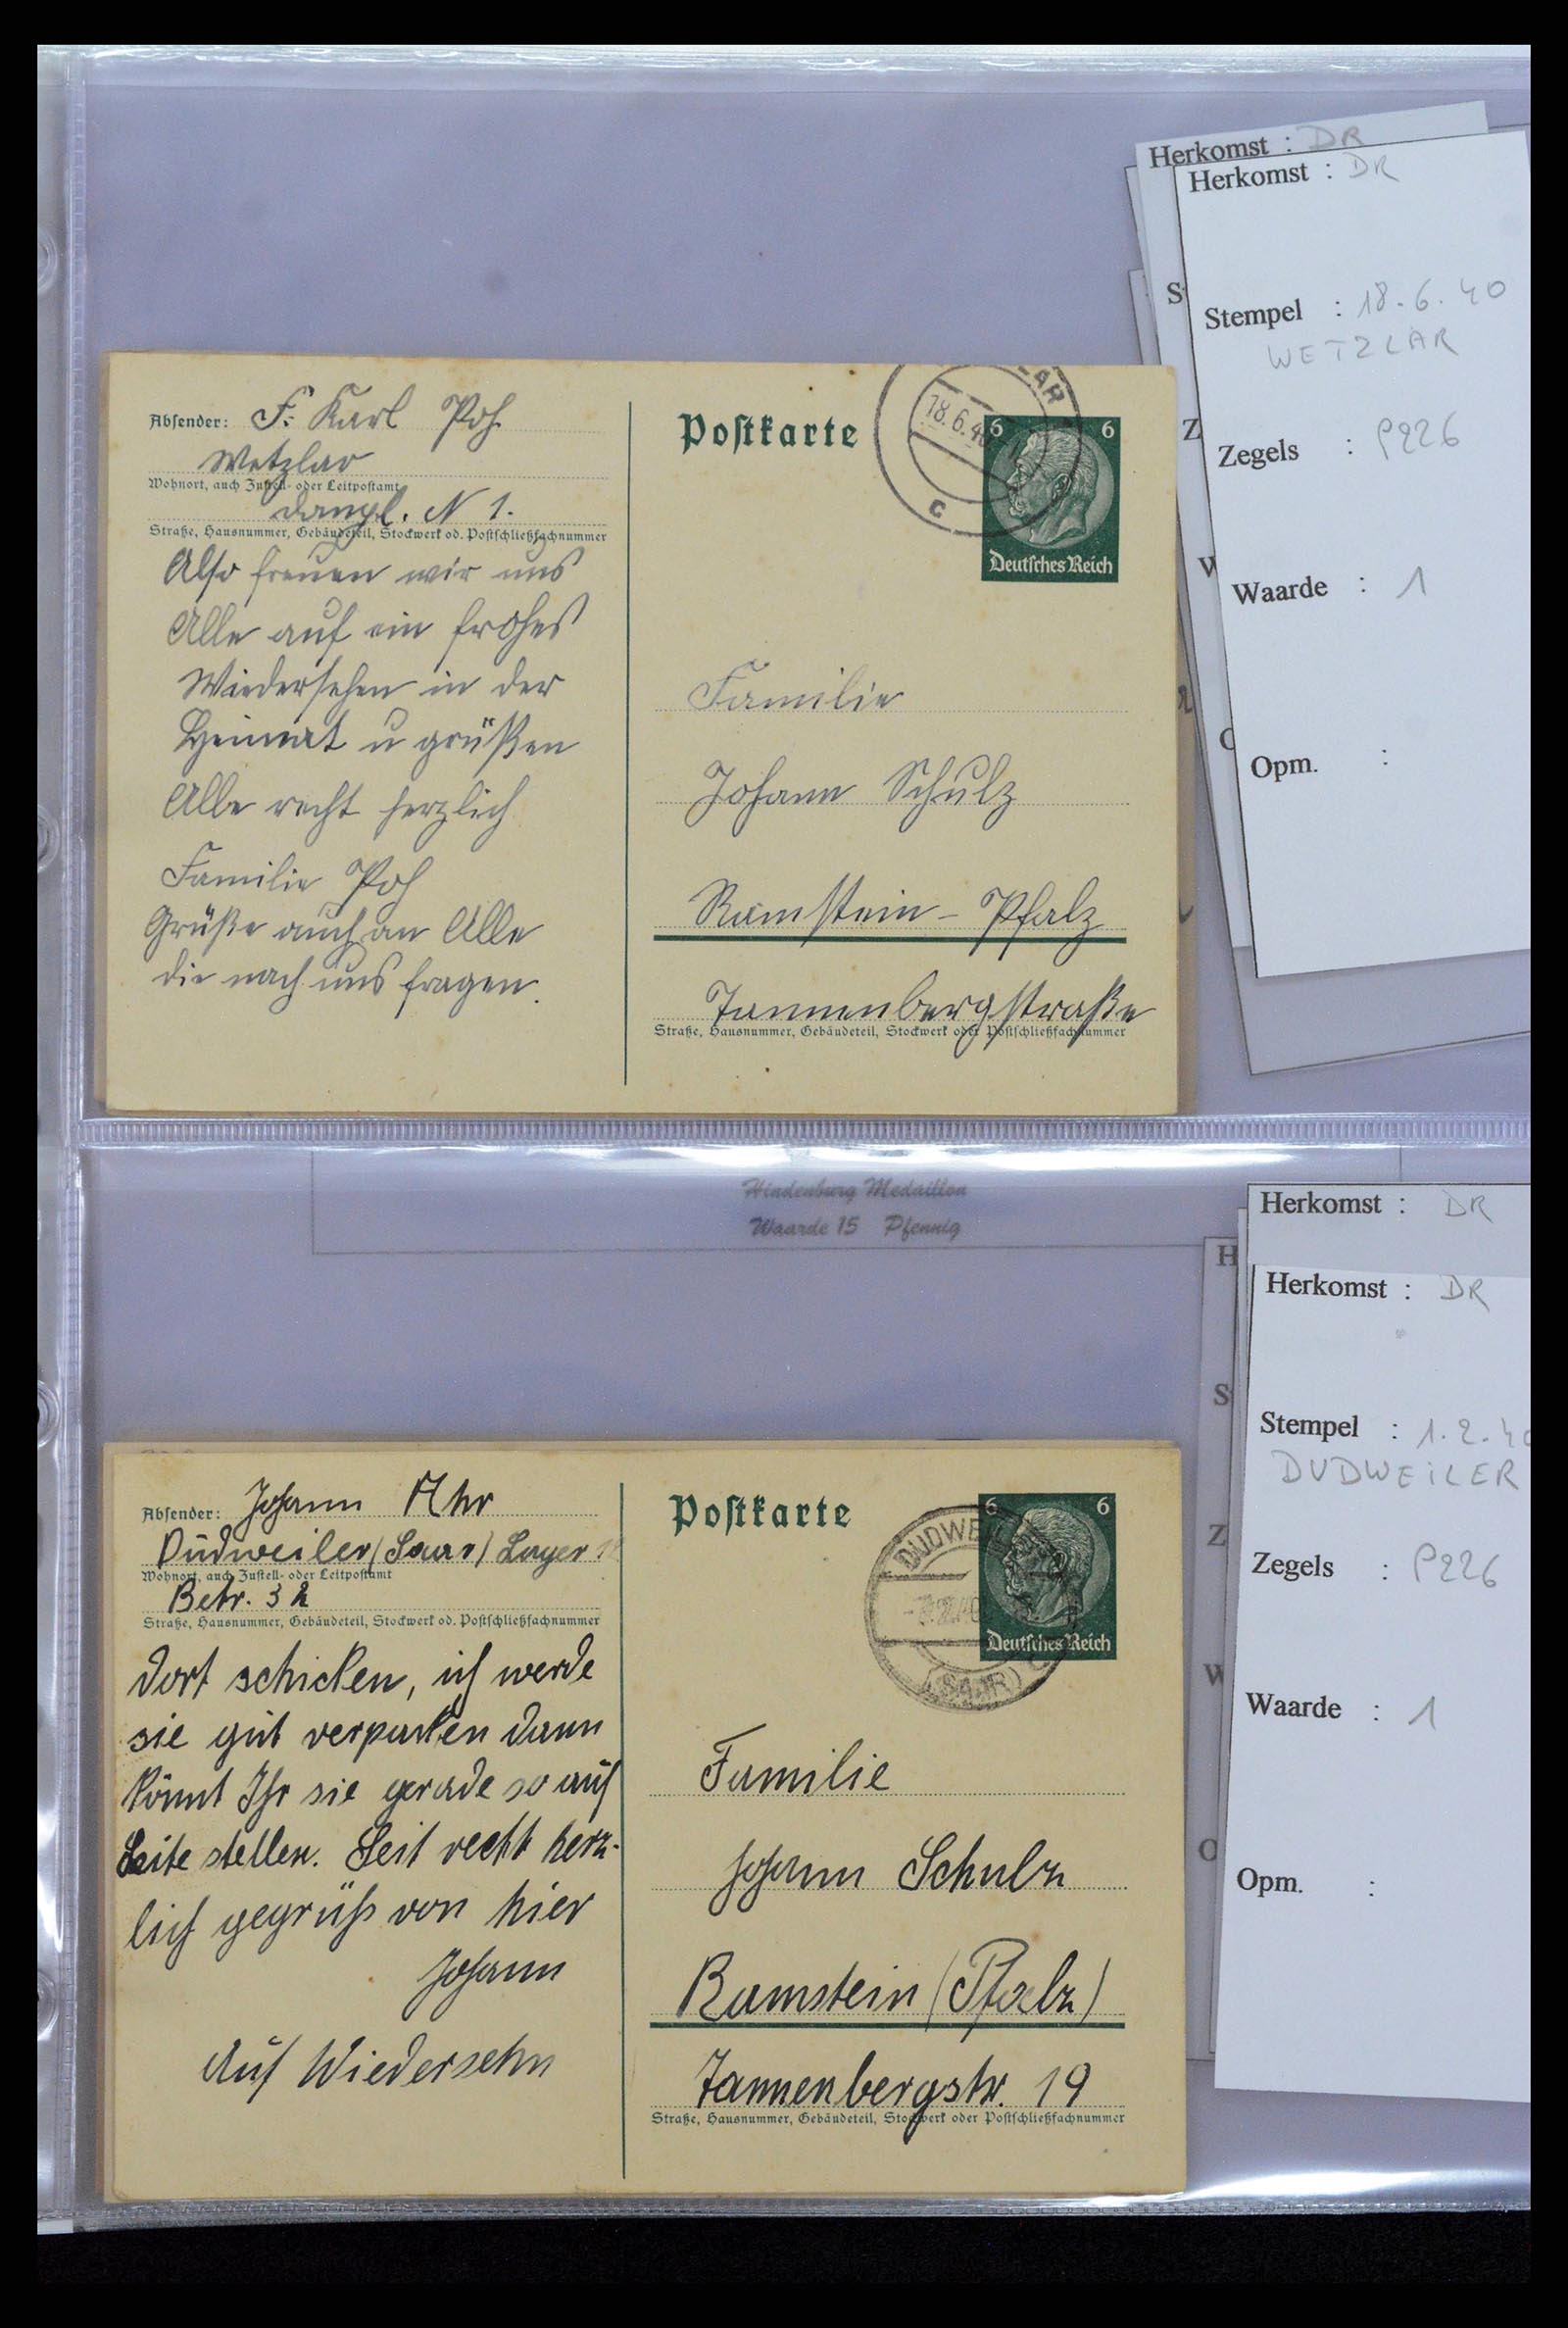 Herkomst : DR
Herkomst : DR
Stempel : 18.6.40
WETZLAR
Zegels : P226
Waarde : 1
Opm. :
Absender: F. Karl Poh
Wetzlar
Wohnort, auch Zustell- oder Leitpostamt
N 1.
Straße, Hausnummer, Gebäudeteil, Stockwerk od. Postschließfachnummer
Also freuen wir uns
Alle auf ein frohes
Wiedersehen in der
Heimat u grüßen
Alle recht herzlich
Familie Poh
Grüße auch an Alle
die nach uns fragen.
Postkarte
AR
18.6.40
c
6 6
Deutsches Reich
Familie
Johann Schulz
Ramstein - Pfalz
Tannenbergstraße
Straße, Hausnummer, Gebäudeteil, Stockwerk oder Postschließfachnummer
Hindenburg Medaillon
Waarde 15 Pfennig
Herkomst : DR
Herkomst : DR
Stempel : 1.2.40
DUDWEILER
Zegels : P226
Waarde : 1
Opm. :
Absender: Johann Ahr
Dudweiler (Saar) Lager
Wohnort, auch Zustell- oder Leitpostamt
Betr. 32
Straße, Hausnummer, Gebäudeteil, Stockwerk od. Postschließfachnummer
dort schicken, ich werde
sie gut verpacken dann
könnt Ihr sie gerade so auf
Seite stellen. Seit recht herz-
lich gegrüßt von hier
Johann
Auf Wiedersehn
Postkarte
DUDWEILER
(SAAR)
6 6
Deutsches Reich
Familie
Johann Schulz
Ramstein (Pfalz)
Tannenbergstr. 19
Straße, Hausnummer, Gebäudeteil, Stockwerk oder Postschließfachnummer